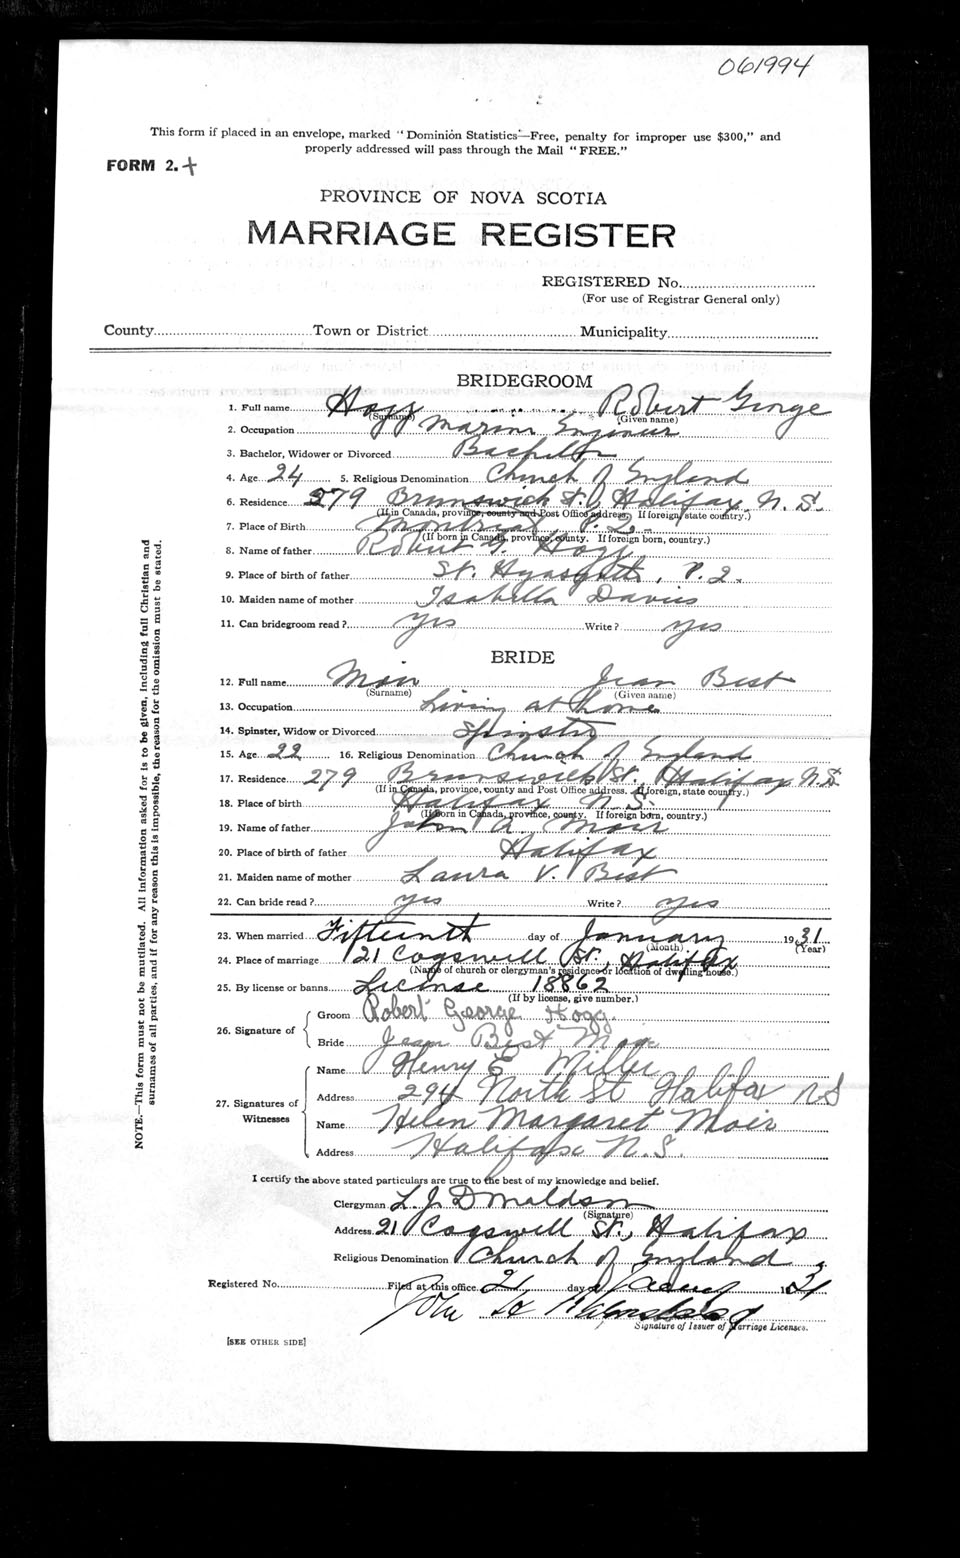 061994
This form if placed in an envelope, marked "Dominion Statistics—Free, penalty for improper use $300," and
properly addressed will pass through the Mail "FREE."
FORM 2. +
PROVINCE OF NOVA SCOTIA
MARRIAGE REGISTER
REGISTERED No.
(For use of Registrar General only)
County Town or District Municipality
BRIDEGROOM
1. Full name Hogg Robert George
(Surname) (Given name)
2. Occupation Marine Engineer
3. Bachelor, Widower or Divorced Bachelor
4. Age 24 5. Religious Denomination Church of England
6. Residence 279 Brunswick St., Halifax, N.S.
(If in Canada, province, county and Post Office address. If foreign, state country.)
7. Place of Birth Montreal P.Q.
(If born in Canada, province, county. If foreign born, country.)
8. Name of father Robert G. Hogg
9. Place of birth of father St. , P.Q.
10. Maiden name of mother Isabella Davies
11. Can bridegroom read? yes Write? yes
BRIDE
12. Full name Moir Jean Best
(Surname) (Given name)
13. Occupation Living at home
14. Spinster, Widow or Divorced Spinster
15. Age 22 16. Religious Denomination Church of England
17. Residence 279 Brunswick St., Halifax N.S.
(If in Canada, province, county and Post Office address. If foreign, state country.)
18. Place of birth Halifax N.S.
(If born in Canada, province, county. If foreign born, country.)
19. Name of father John A. Moir
20. Place of birth of father Halifax
21. Maiden name of mother Laura V. Best
22. Can bride read? yes Write? yes
23. When married Fifteenth day of January 1931
(Month) (Year)
24. Place of marriage 21 Cogswell St., Halifax
(Name of church or clergyman's residence or location of dwelling house.)
25. By license or banns License 18862
(If by license, give number.)
26. Signature of Groom Robert George Hogg.
Bride Jean Best Moir
27. Signatures of Witnesses Name Henry E Miller
Address 294 North St Halifax NS
Name Helen Margaret Moir
Address Halifax N.S.
I certify the above stated particulars are true to the best of my knowledge and belief.
Clergyman L. J. Donaldson
(Signature)
Address 21 Cogswell St., Halifax
Religious Denomination Church of England
Registered No. Filed at this office 21 day of January 1931
John
Signature of Issuer of Marriage Licenses.
[SEE OTHER SIDE]
NOTE.—This form must not be mutilated. All information asked for is to be given, including full Christian and
surnames of all parties, and if for any reason this is impossible, the reason for the omission must be stated.